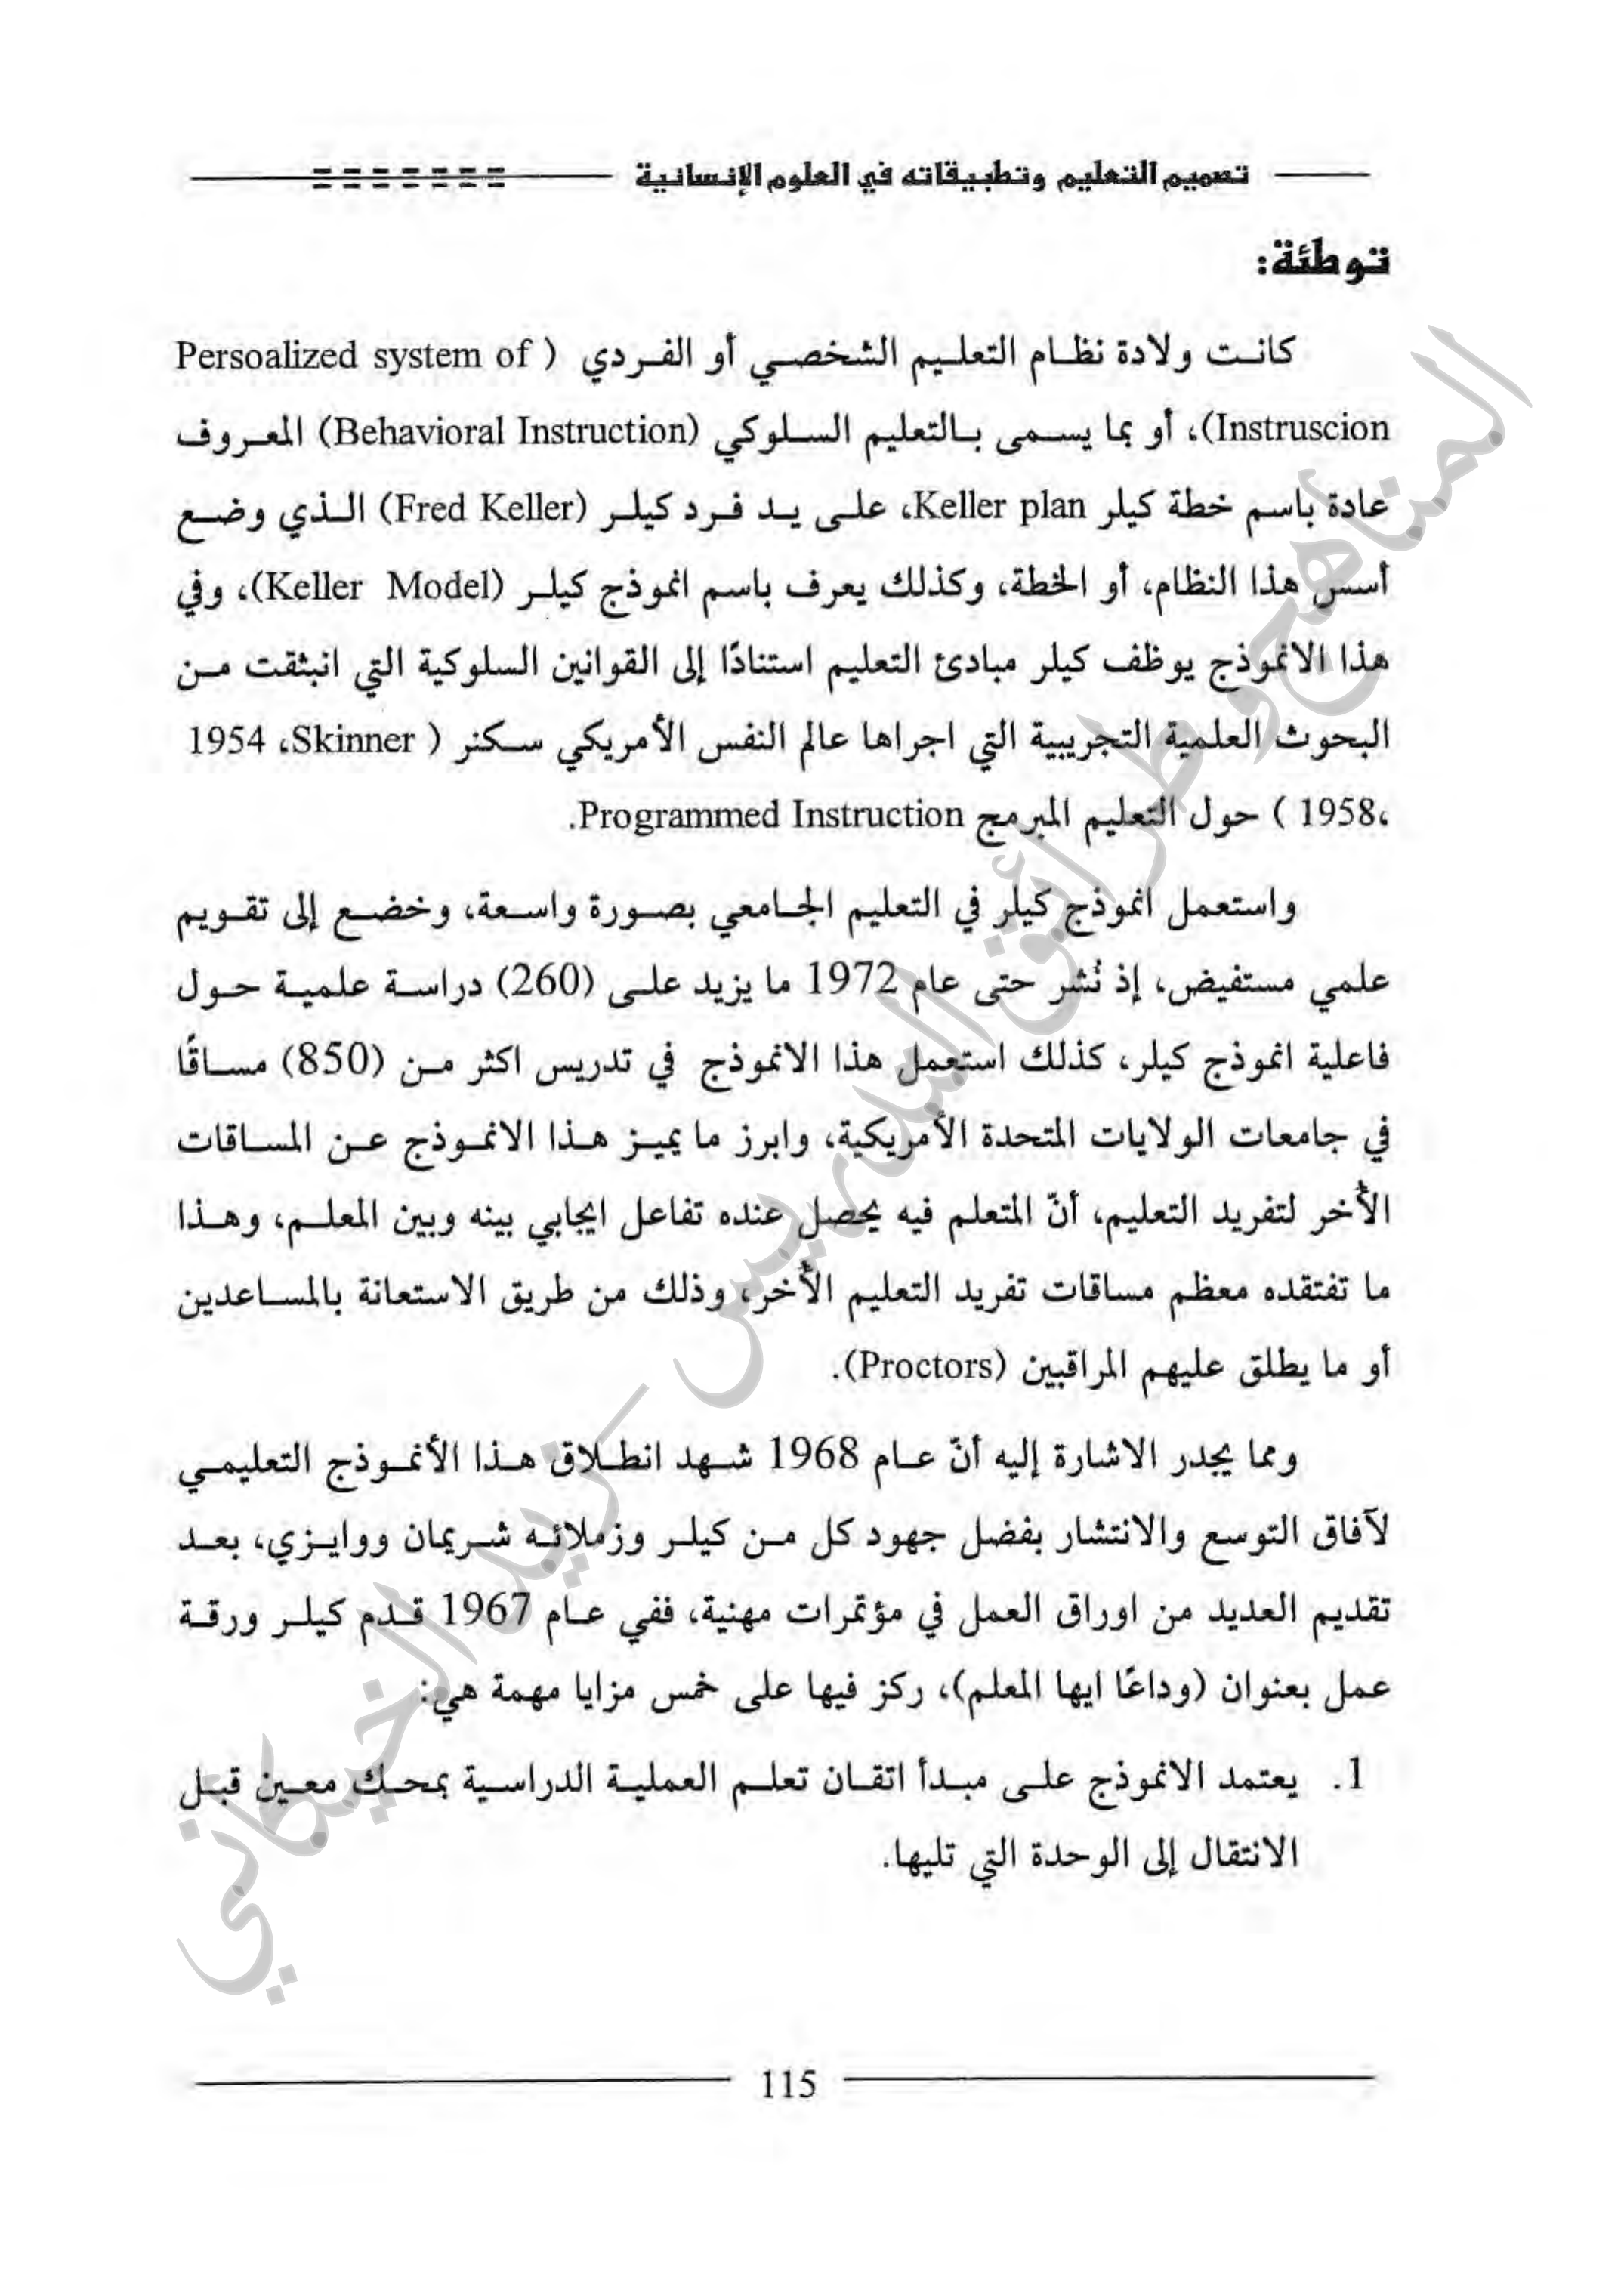 تصميم التعليم وتطبيقاته في العلوم الإنسانية
توطئة:
كانت ولادة نظام التعليم الشخصي أو الفردي ( Persoalized system of
Instruscion)، أو بما يسمى بالتعليم السلوكي (Behavioral Instruction) المعروف
عادة باسم خطة كيلر Keller plan، على يد فرد كيلر (Fred Keller) الذي وضع
أسس هذا النظام، أو الخطة، وكذلك يعرف باسم انموذج كيلر (Keller Model)، وفي
هذا الانموذج يوظف كيلر مبادئ التعليم استنادًا إلى القوانين السلوكية التي انبثقت من
البحوث العلمية التجريبية التي اجراها عالم النفس الأمريكي سكنر ( Skinner، 1954
،1958، ) حول التعليم المبرمج Programmed Instruction.
واستعمل انموذج كيلر في التعليم الجامعي بصورة واسعة، وخضع إلى تقويم
علمي مستفيض، إذ نُشر حتى عام 1972 ما يزيد على (260) دراسة علمية حول
فاعلية انموذج كيلر، كذلك استعمل هذا الانموذج في تدريس اكثر من (850) مساقًا
في جامعات الولايات المتحدة الأمريكية، وابرز ما يميز هذا الانموذج عن المساقات
الأُخر لتفريد التعليم، أنّ المتعلم فيه يحصل عنده تفاعل ايجابي بينه وبين المعلم، وهذا
ما تفتقده معظم مساقات تفريد التعليم الأُخر، وذلك من طريق الاستعانة بالمساعدين
أو ما يطلق عليهم المراقبين (Proctors).
ومما يجدر الاشارة إليه أنّ عام 1968 شهد انطلاق هذا الأنموذج التعليمي
لآفاق التوسع والانتشار بفضل جهود كل من كيلر وزملائه شريمان ووايزي، بعد
تقديم العديد من اوراق العمل في مؤتمرات مهنية، ففي عام 1967 قدم كيلر ورقة
عمل بعنوان (وداعًا ايها المعلم)، ركز فيها على خمس مزايا مهمة هي:
1. يعتمد الانموذج على مبدأ اتقان تعلم العملية الدراسية بمحك معين قبل
الانتقال إلى الوحدة التي تليها.
115
المناهج وطرائق التدريس - زيد الخيكاني